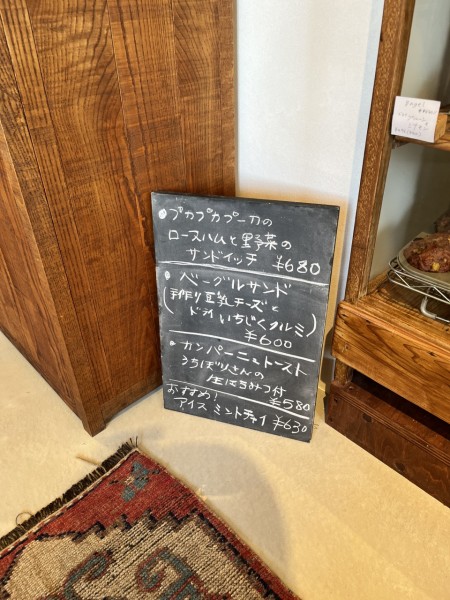 プカプカプー刀の
ロースハムと野菜の
サンドイッチ ¥680
ベーグルサンド
(手作り豆乳チーズと
ドライいちじくクルミ)
¥600
カンパーニュトースト
うちぼりさんの
生はちみつ付
¥580
おすすめ!
アイスミントチャイ ¥630